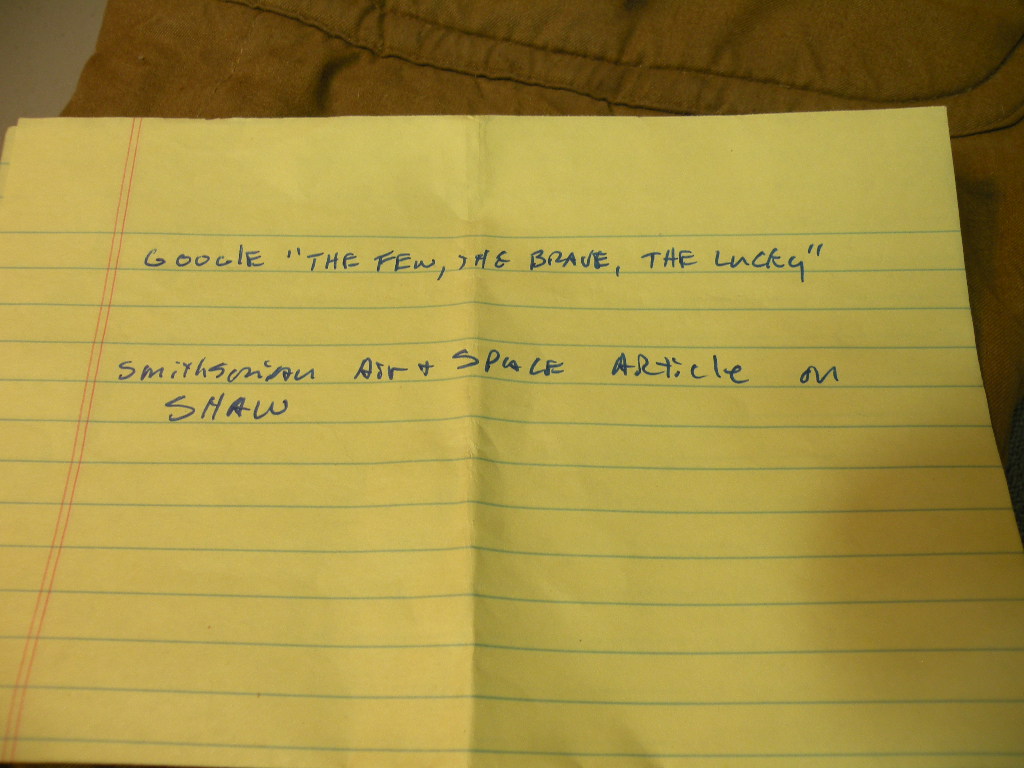 GOOGlE "THE FEW, THE BRAVE, THE LUCKY"
Smithsonian Air + SPACE ARticle on
SHAW